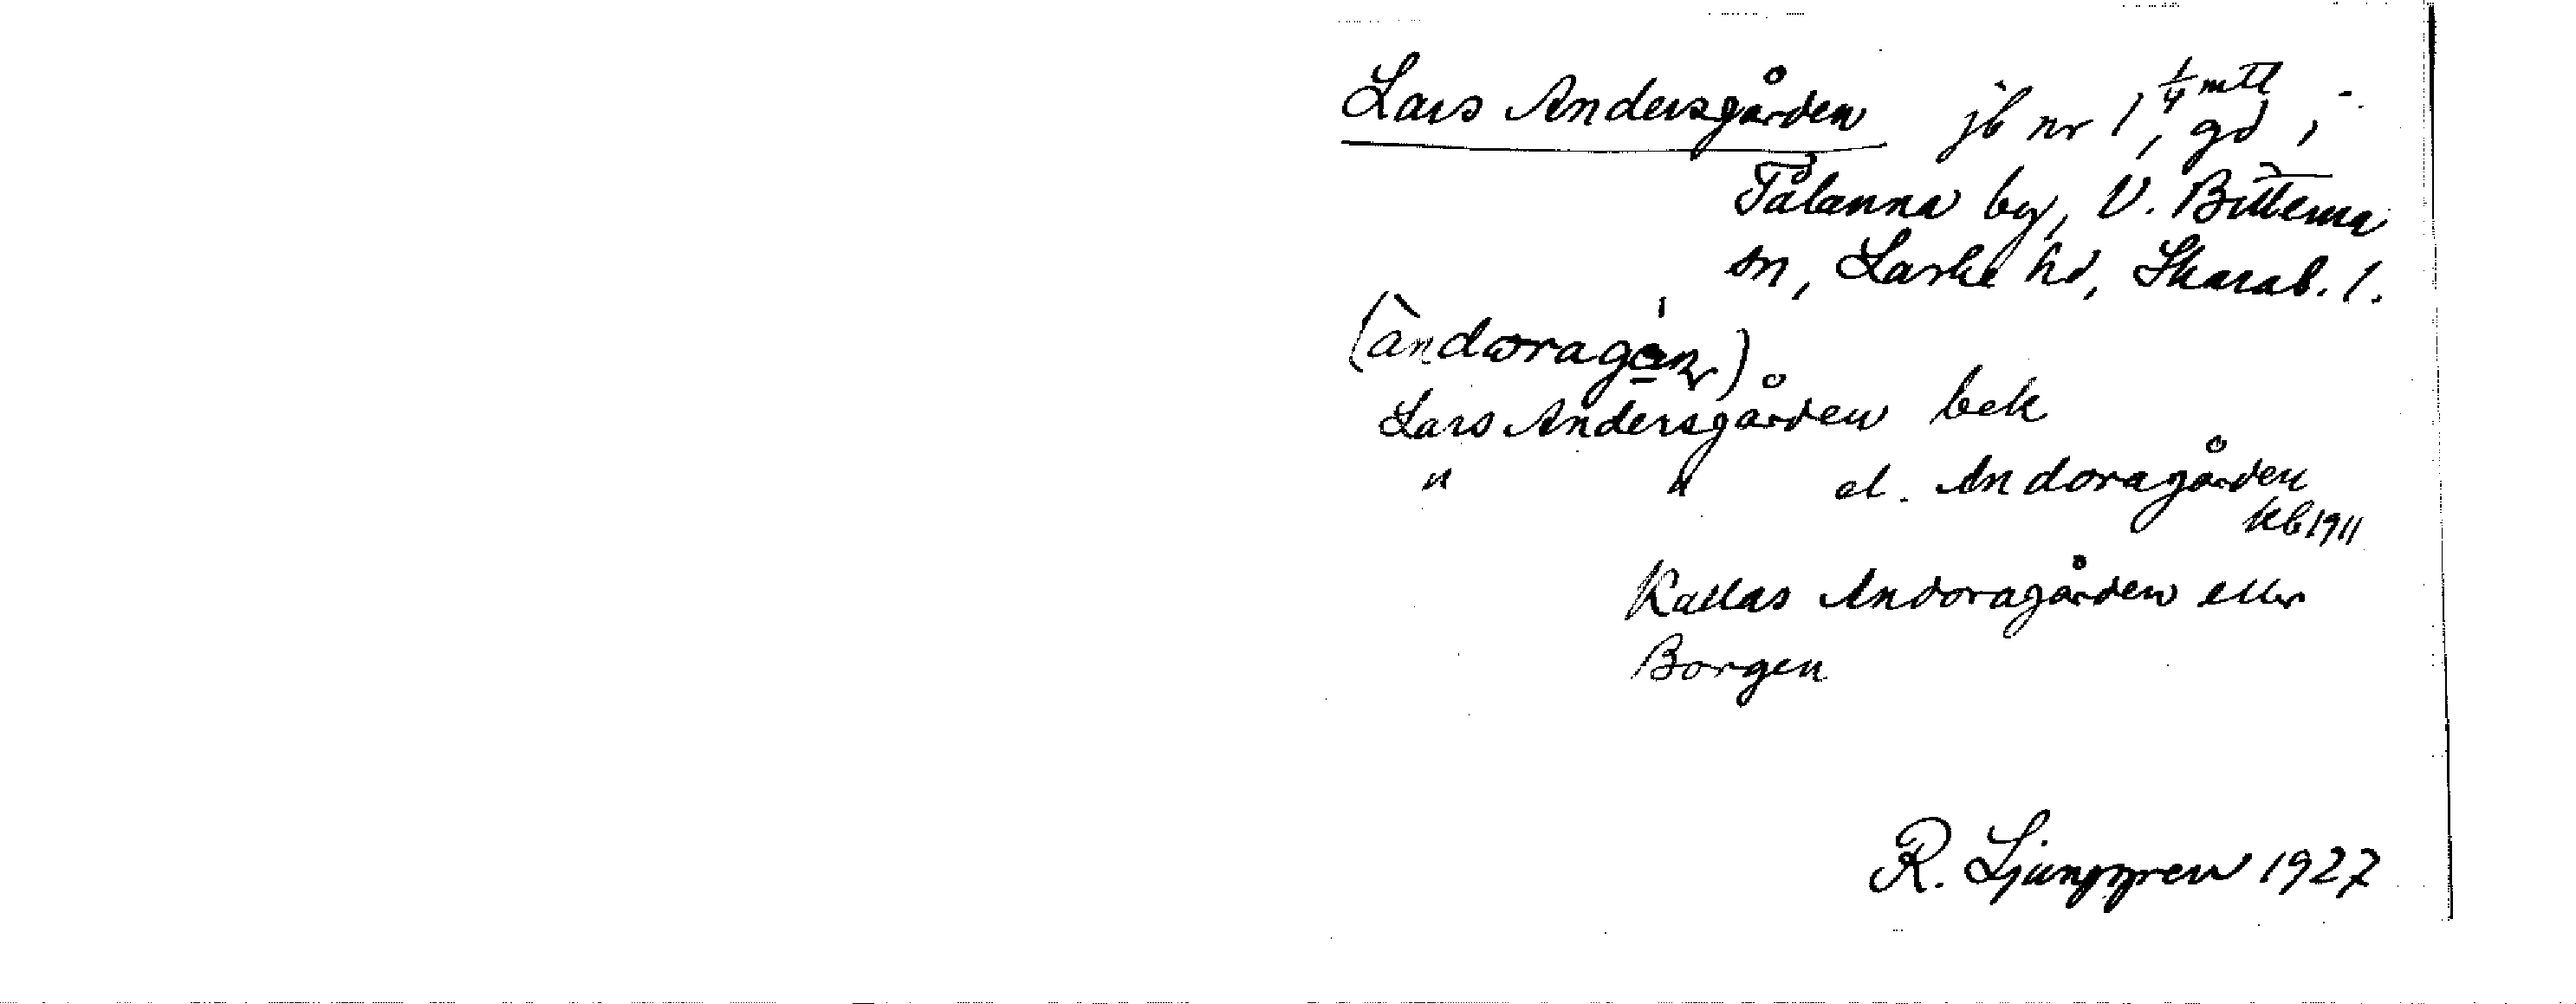 Lars Andersgården jb nr 1, 1/4 mtl gd i
Tålanna by, V. Bitterna
sn, Laske hd, Skarab. l.
Lars Andersgården bek
" " el. Andoragården
kb 1911
Kallas Andoragården eller
Borgen
R. Ljunggren 1927